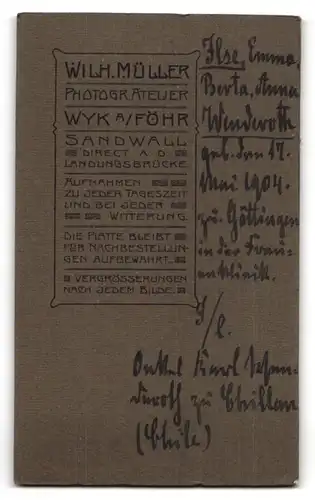 WILH. MÜLLER
PHOTOGR. ATELIER
WYK a/FÖHR
SANDWALL
DIRECT A. D.
LANDUNGSBRÜCKE.
AUFNAHMEN
ZU JEDER TAGESZEIT
UND BEI JEDER
WITTERUNG.
DIE PLATTE BLEIBT
FÜR NACHBESTELLUN-
GEN AUFBEWAHRT.
VERGRÖSSERUNGEN
NACH JEDEM BILDE.
Ilse, Emma,
Berta, Anna
Wenderoth
geb. den 17.
Mai 1904.
zu Göttingen
in der Frau-
enklinik.
Onkel Karl
deroth zu Chillan
(Chile)